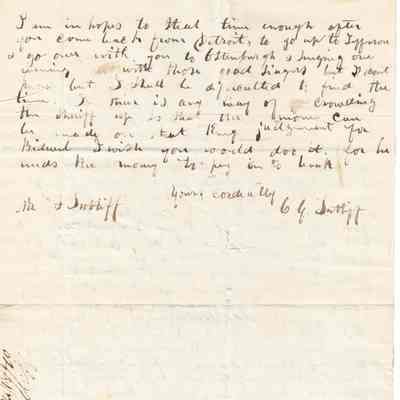 I am in hopes to steal time enough after
you come back from Detroit, to go up to Jefferson
& go over with you to Edenburgh & singing one
evening with those good singers but I dont
know but I shall be difficulted to find the
time. If there is any way of crowding
the sheriff up so that the money can
be made on that King judgement for
Bidwell I wish you would doo it, for he
needs the money to pay in to bank
Yours cordially
M Sutliff C G Sutliff